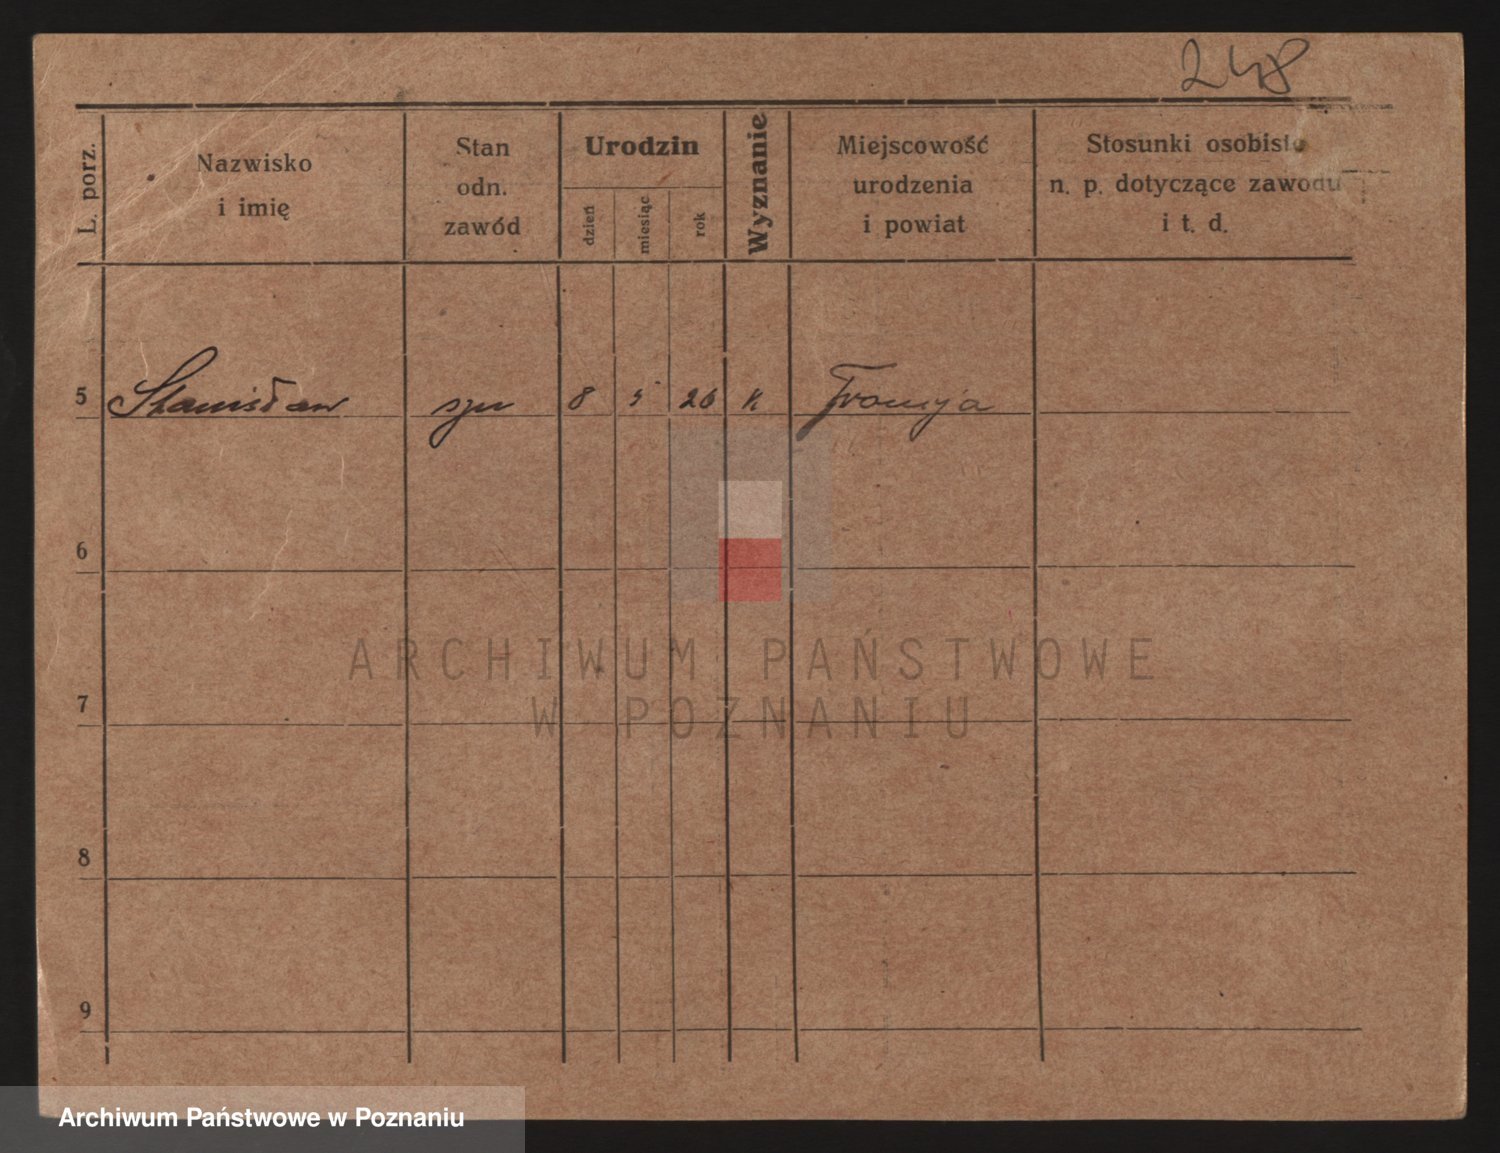 248
L. porz.
Nazwisko
i imię
Stan
odn.
zawód
Urodzin
dzień
miesiąc
rok
Wyznanie
Miejscowość
urodzenia
i powiat
Stosunki osobiste
n. p. dotyczące zawodu
i t. d.
5 Stanisław syn 8 5 26 K Francja
6
7
8
9
ARCHIWUM PAŃSTWOWE
W POZNANIU
Archiwum Państwowe w Poznaniu